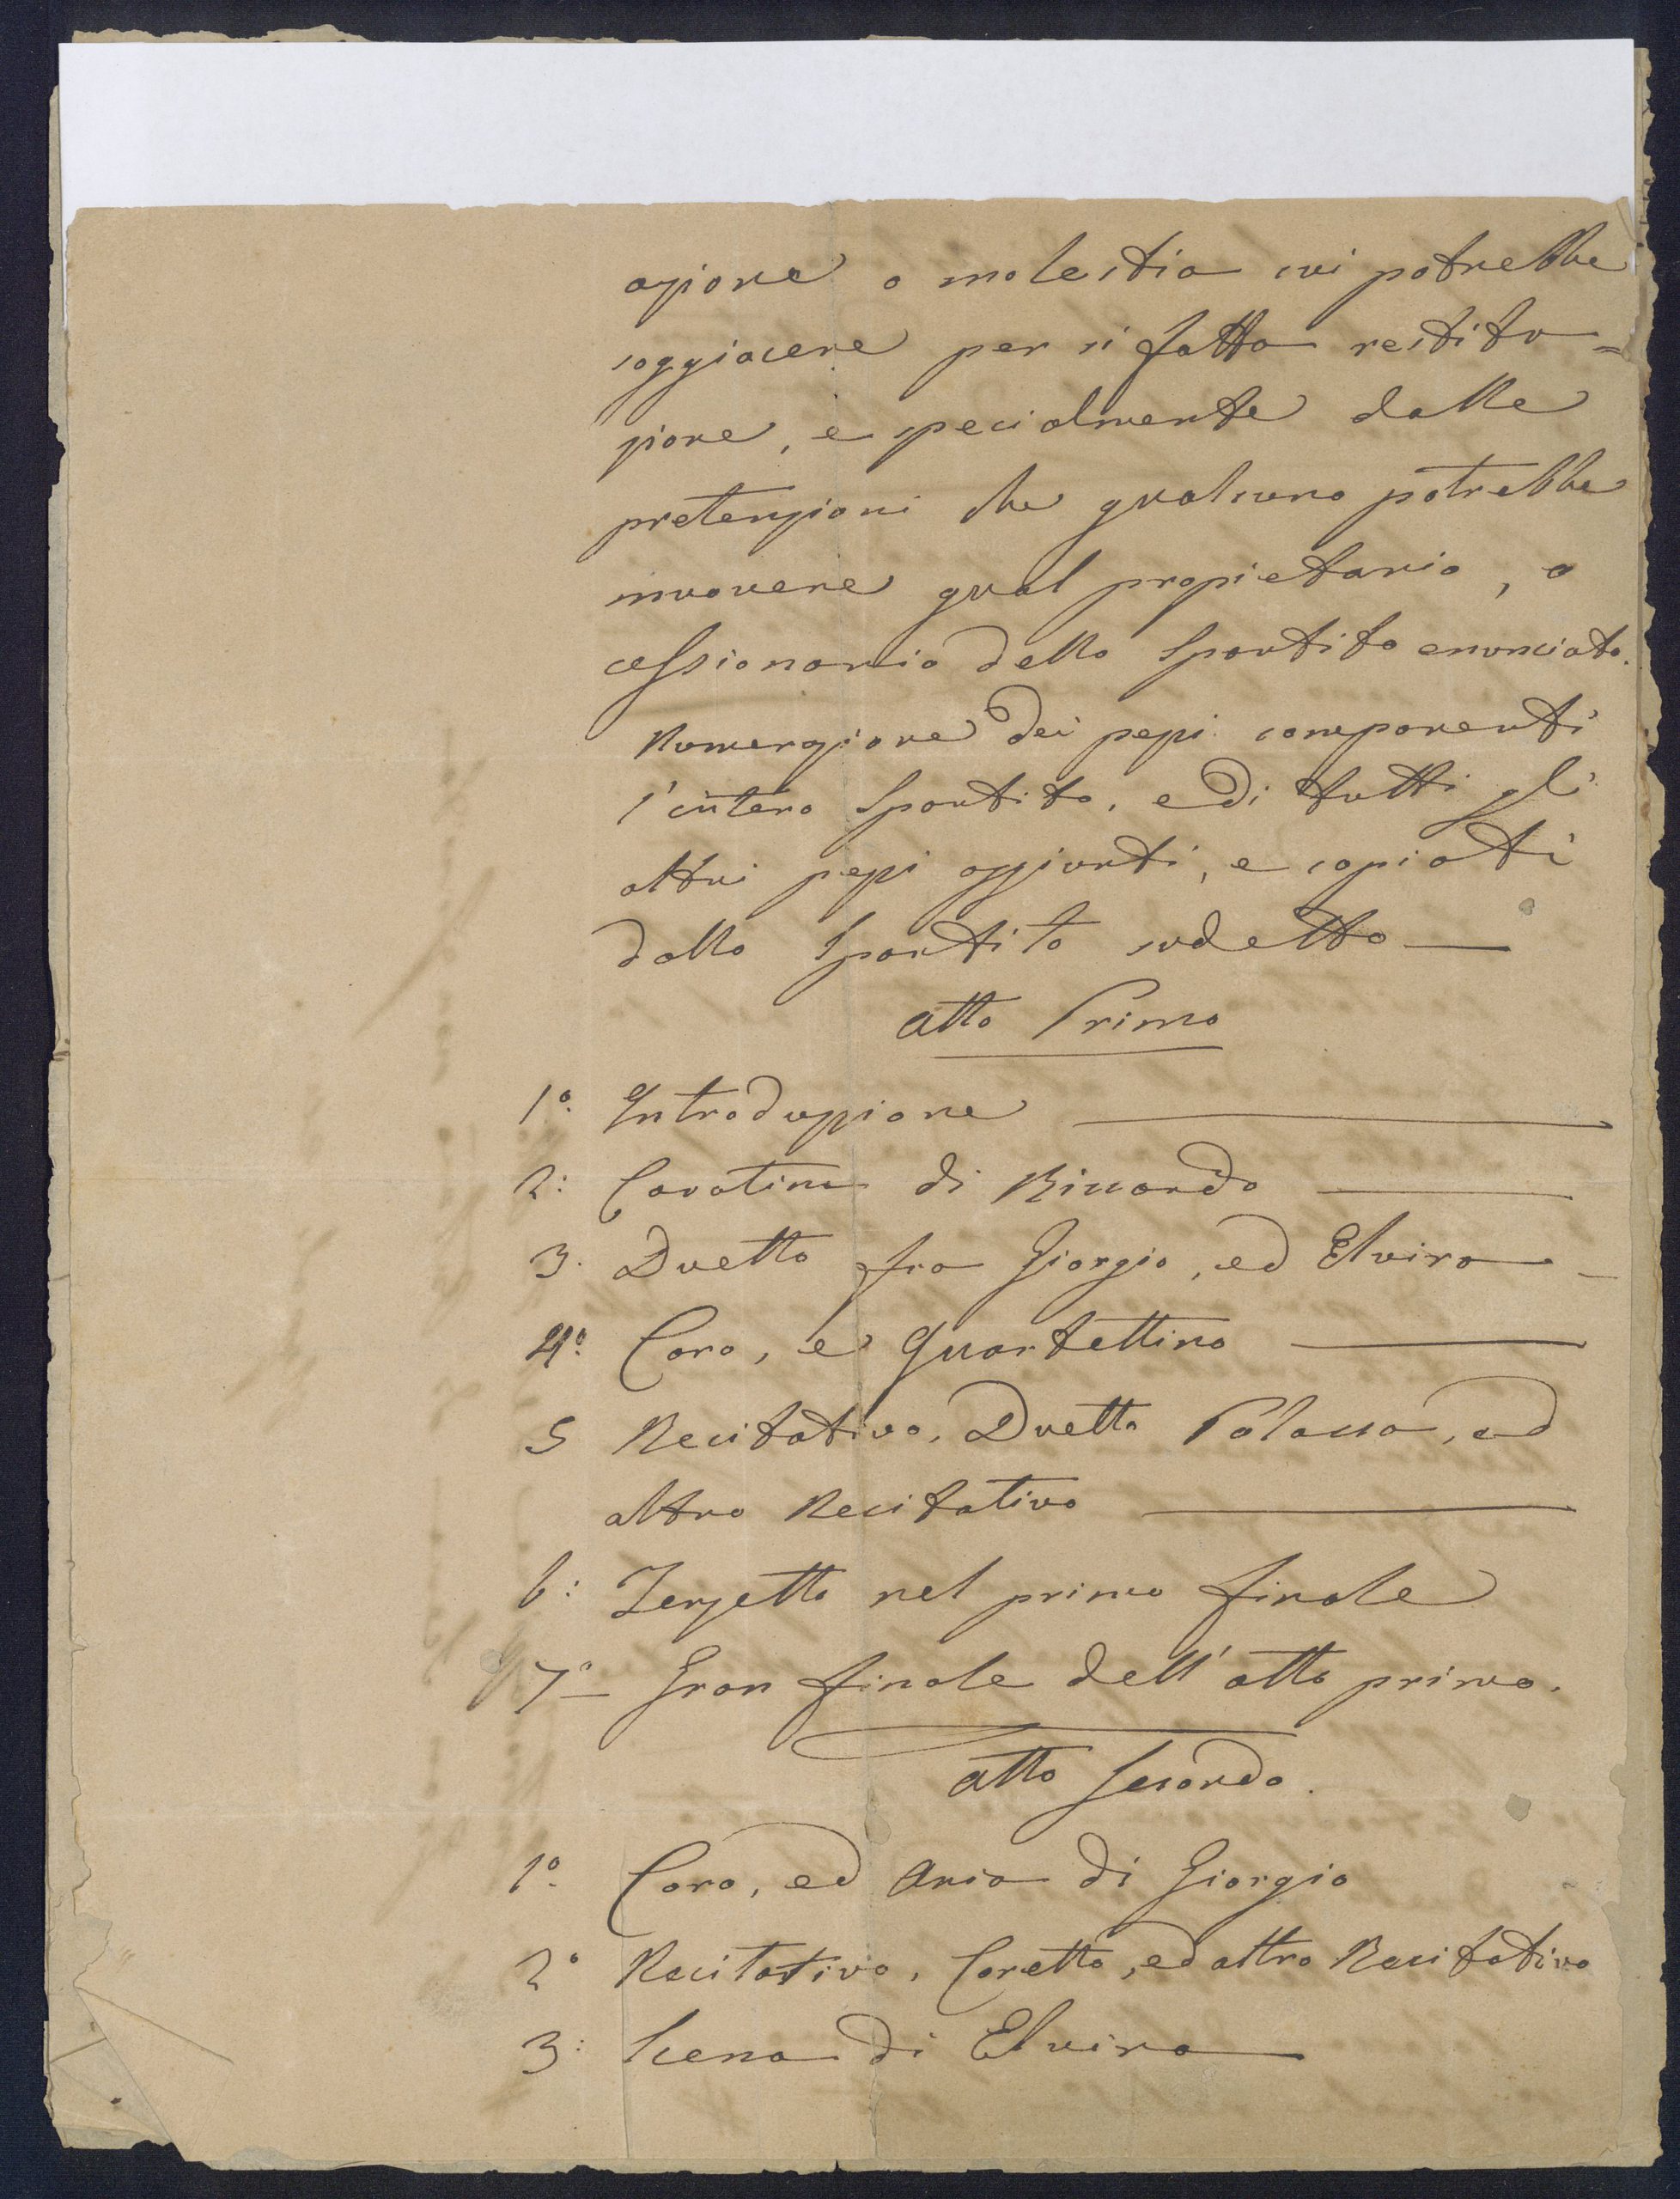 azione o molestia cui potrebbe
soggiacere per sì fatta restitu=
zione, e specialmente dalle
pretenzioni che qualcuno potrebbe
muovere qual propietario, o
cessionario dello Spartito enunciato.
Numerazione dei pezzi componenti
l'intero Spartito, e di tutti gli
altri pezzi aggiunti, e copiati
dallo Spartito sudetto —
Atto Primo
1º. Introduzzione —
2: Cavatina di Riccardo —
3. Duetto fra Giorgio, ed Elvira —
4º. Coro, e Quartettino —
5 Recitativo, Duetto Polacca, ed
altro Recitativo —
6: Terzetto nel primo finale
7º — Gran finale dell'atto primo.
Atto Secondo.
1º. Coro, ed Aria di Giorgio
2º Recitativo, Coretto, ed altro Recitativo
3: Scena di Elvira —